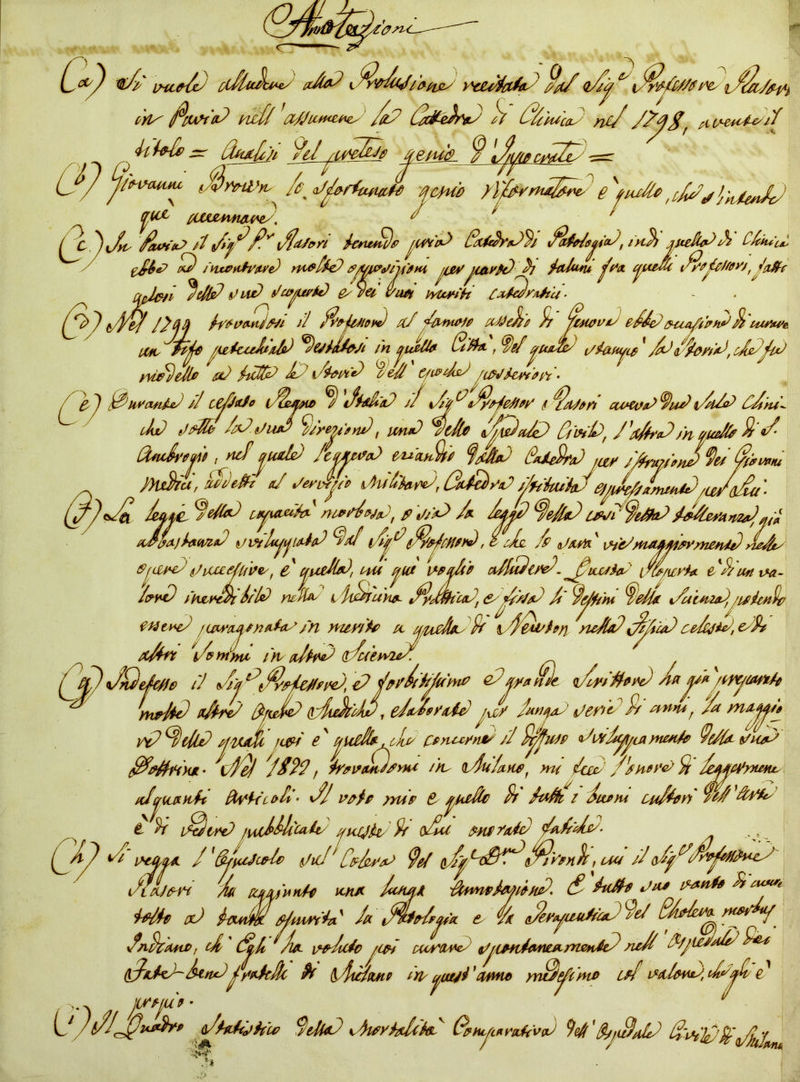 Annotazioni
(a) Si vuole alludere alla Prolusione recitata dal Sig.r Professore Rasori
in Pavia nell'assumere la Cattedra di Clinica nel 1798, avente il
titolo = Analisi del preteso genio d'Ippocrate =
(b) Giovanni Brown lo sfortunato genio riformatore e quello, che s'intende
qui accennare.
(c) In Pavia il Sig.r Pr. Rasori tenendo pria Cattedra di Patologia, indi quella di Clinica
ebbe ad incontrare molte opposizioni per parte di taluni fra quelli Professori, fatti
gelosi delle sue scoperte e dei suoi meriti Cattedratici.
(d) Nel 1799 trovandosi il Professore al famoso assedio di Genova ebbe occasione di curare
un Tifo petecchiale destatosi in quella Città, del quale stampò la storia, che fu
modello a tutte le storie dell'epoche posteriori.
(e) Durante il cessato Regno d'Italia il Sig.r Professor Rasori aveva due Sale Clini-
che sotto la sua direzione, una dello Spedale Civile, l'altra in quello di S.
Ambrogio, nel quale leggeva eziandio dalla Cattedra per istruzione dei Giovani
Medici, addetti al servizio Militare, Cattedra istituita espressamente per Lui.
(f) La legge della capacità morbosa, o sia la legge della così detta tolleranza, già
abbastanza sviluppata dal Sig.r Professore, e che lo sarà viemaggiormente nelle
opere successive, è quella, cui qui voglio alludere. Questa scoperta è di un va-
lore incredibile nella Medicina Pratica, e forse li destini della scienza, potendo
essere paragonata in merito a quella di Newton nella Fisica celeste, e di
altri Sommi in altre Scienze.
(g) Indefesso il Sig.r Professore, e forbitissimo e grande Scrittore ha già preparato
molte altre Opere Mediche, elaborate per lunga serie di anni, la maggio
re delle quali poi è quella, che concerne il diffuso sviluppamento della sua
Dottrina. Nel 1822, trovandomi in Milano, mi fece l'onore di leggermene
alquanti Articoli. Il voto mio e quello di tutti i buoni cultori dell'Arte
è di vedere pubblicate queste di Lui onorate fatiche.
(h) Si vegga l'Opuscolo sul Colera del Sig.r D.r Pirondi, cui il Sig.r Professore
Rasori ha aggiunto una lunga Annotazione. È tutto suo vanto di avere
tolto ad tanta oscurità la Patologia e la Terapeutica del Cholera morbus
Indiano, ch'Egli ha voluto poi curare spontaneamente nell'Ospedale dei
Fate-bene fratelli di Milano in quest'anno medesimo col valore, che gli è
proprio.
(i) Il Quadro Statistico della Mortalità Comparativa dell'Ospedale Civile di Milano